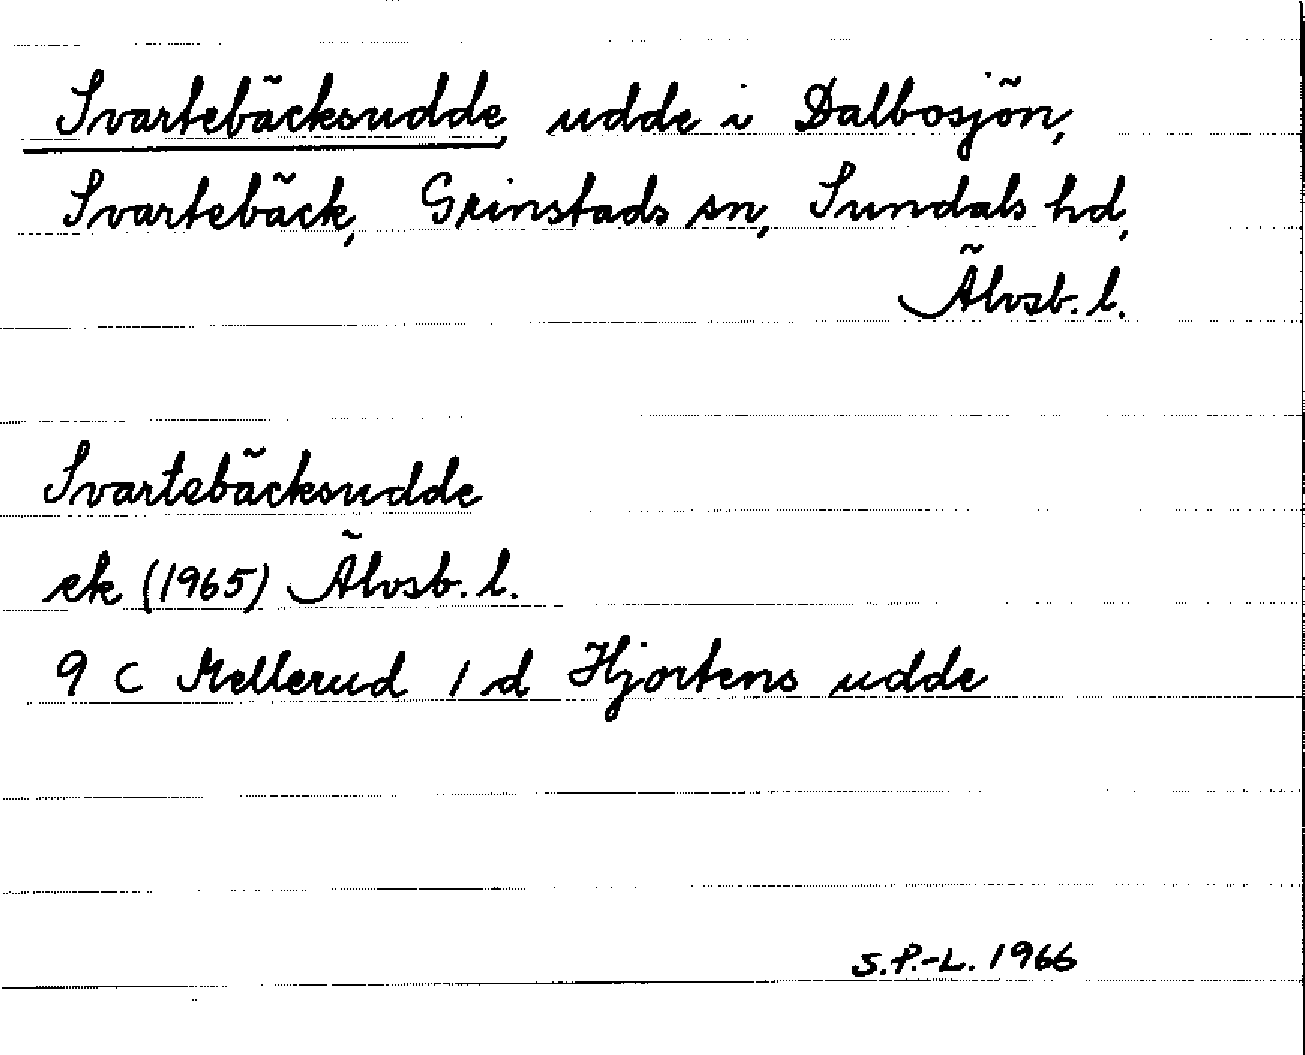 Svartebäcksudde, udde i Dalbosjön,
Svartebäck, Grinstads sn, Sundals hd,
Älvsb. l.
Svartebäcksudde
ek (1965) Älvsb. l.
9 C Mellerud 1 d Hjortens udde
S.P.-L. 1966